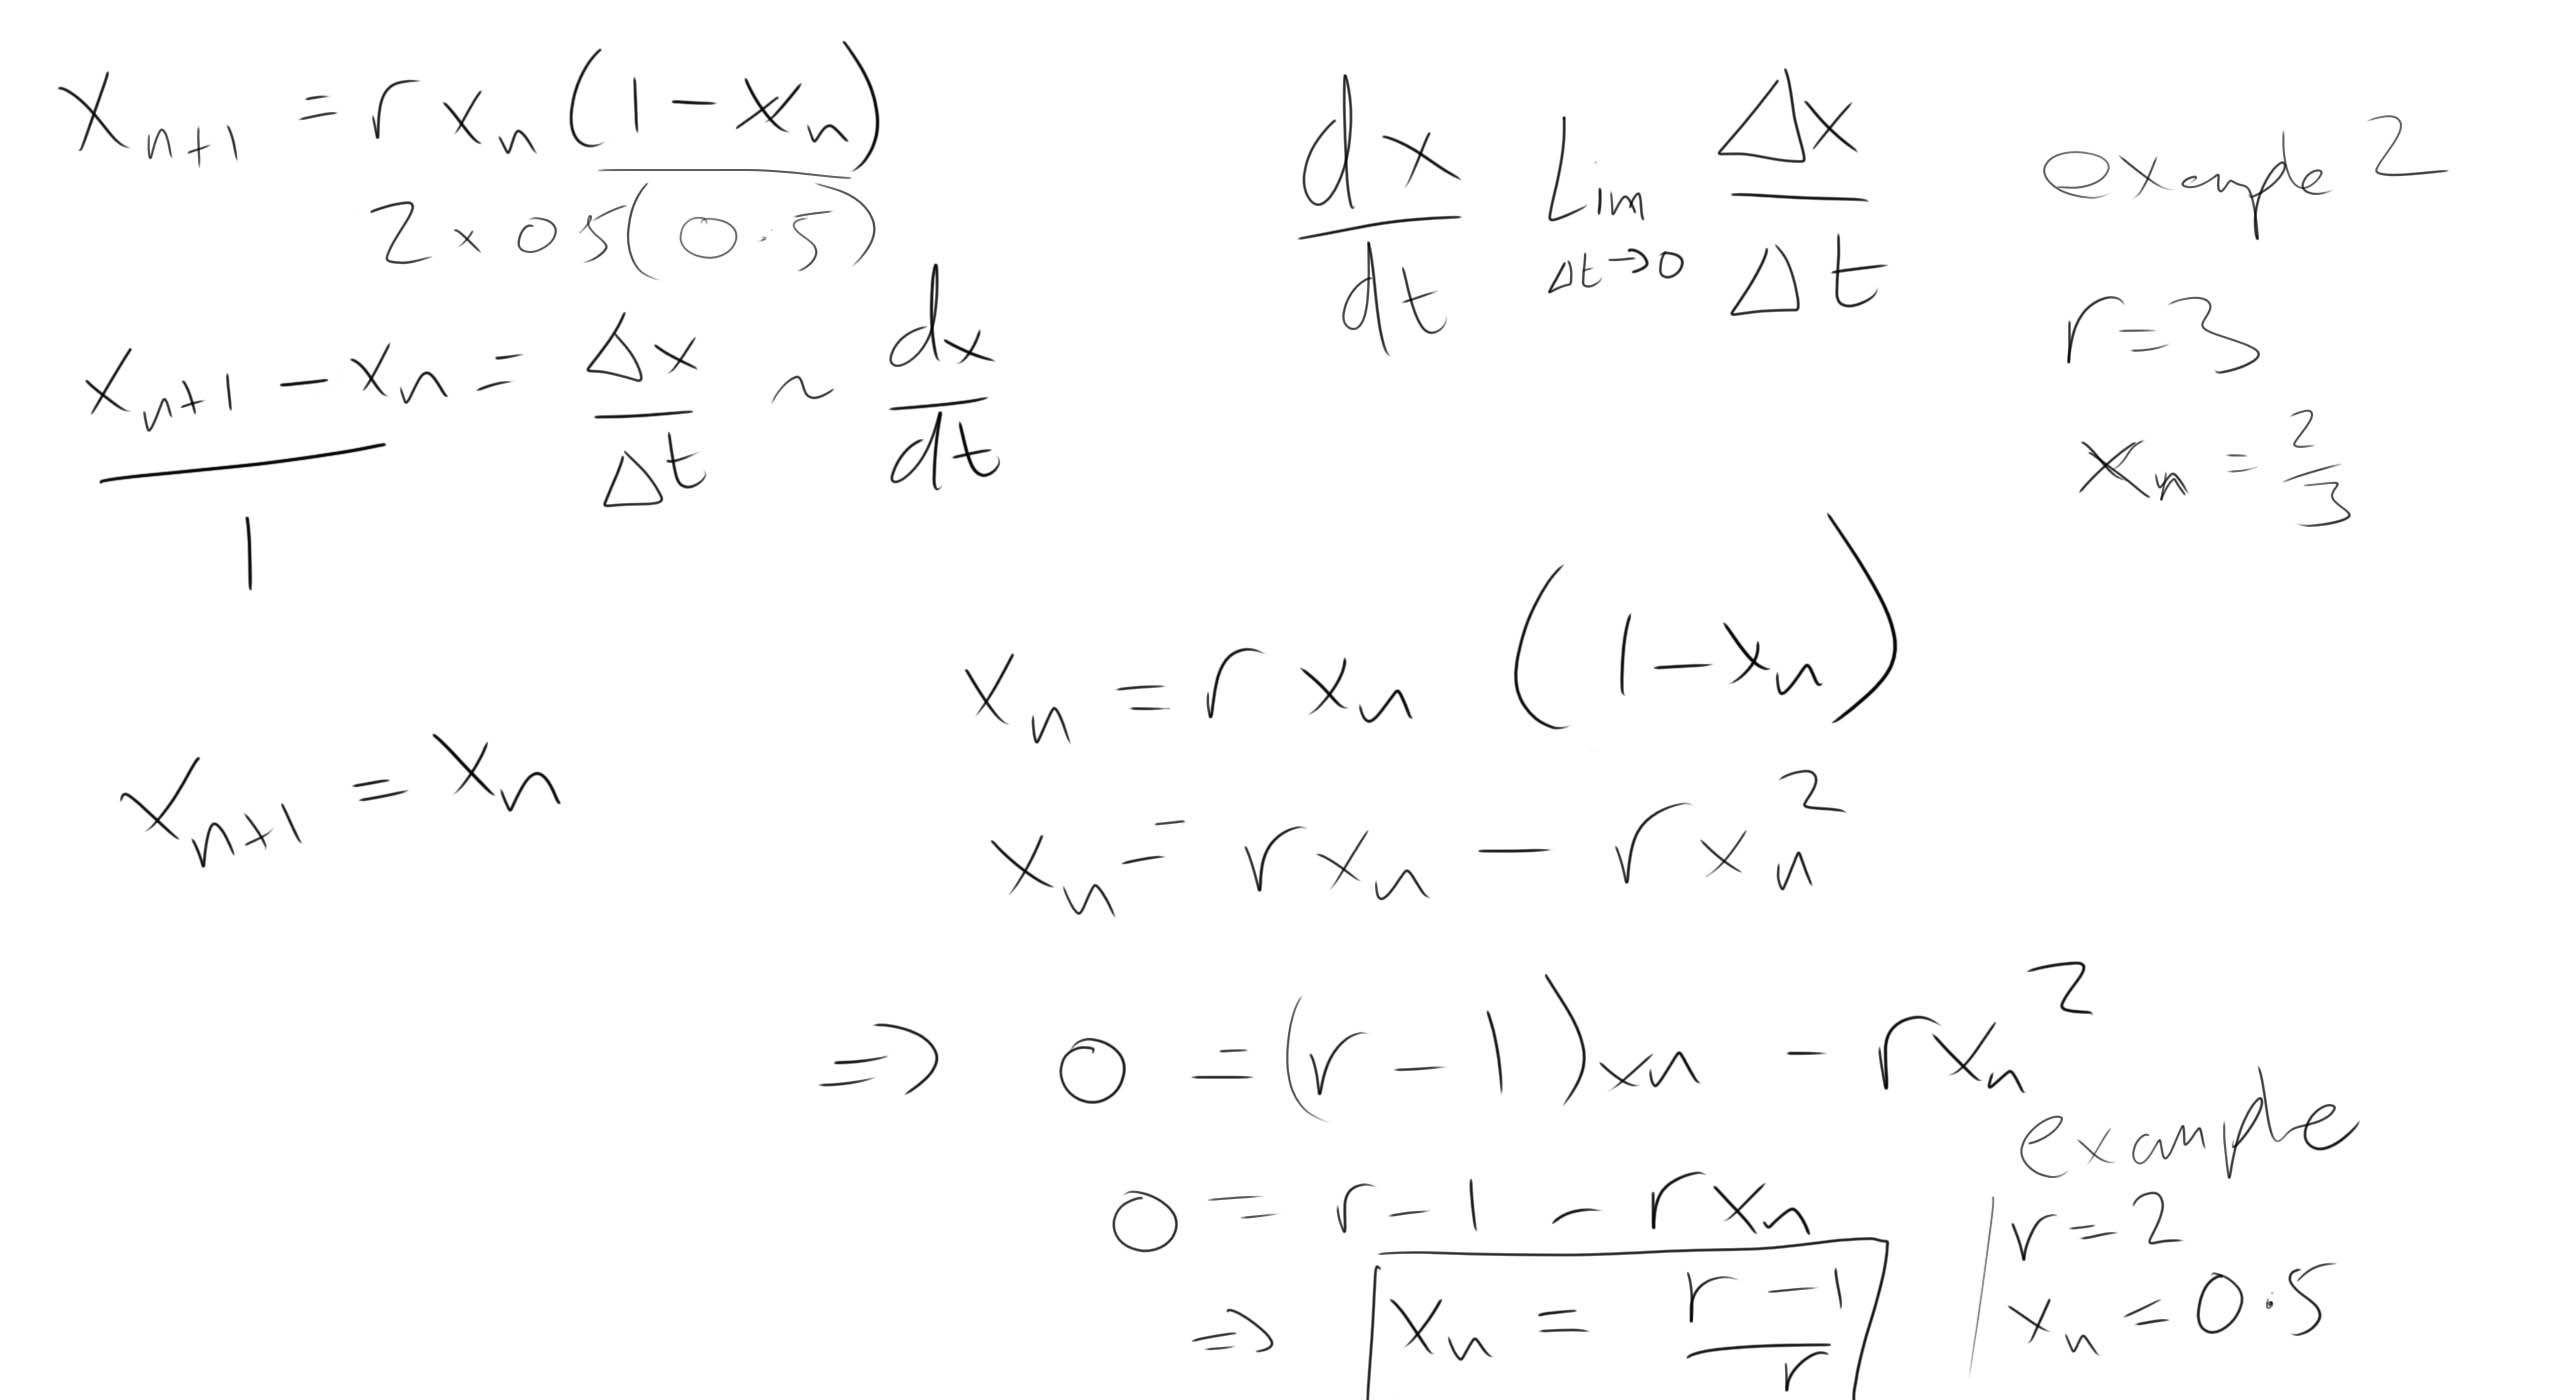 x_{n+1} = r x_n (1 - x_n)
2 × 0 5 (0.5)
\frac{x_{n+1} - x_n}{1} = \frac{Δx}{Δt} ~ \frac{dx}{dt}
\frac{dx}{dt} Lim_{Δt→0} \frac{Δx}{Δt}
example 2
r = 3
x_n = \frac{2}{3}
x_{n+1} = x_n
x_n = r x_n (1 - x_n)
x_n = r x_n - r x_n^2
⇒ 0 = (r - 1) x_n - r x_n^2
0 = r - 1 - r x_n
⇒ x_n = \frac{r - 1}{r}
example
r = 2
x_n = 0.5